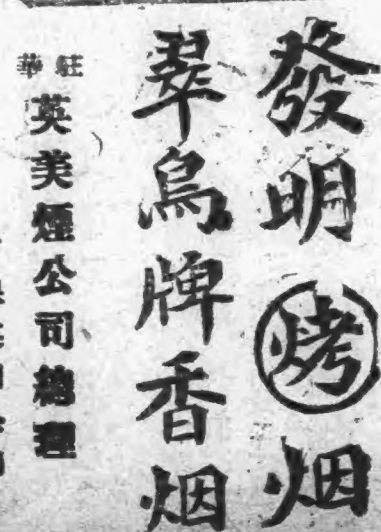 發明烤烟
翠鳥牌香烟
駐華英美煙公司總理